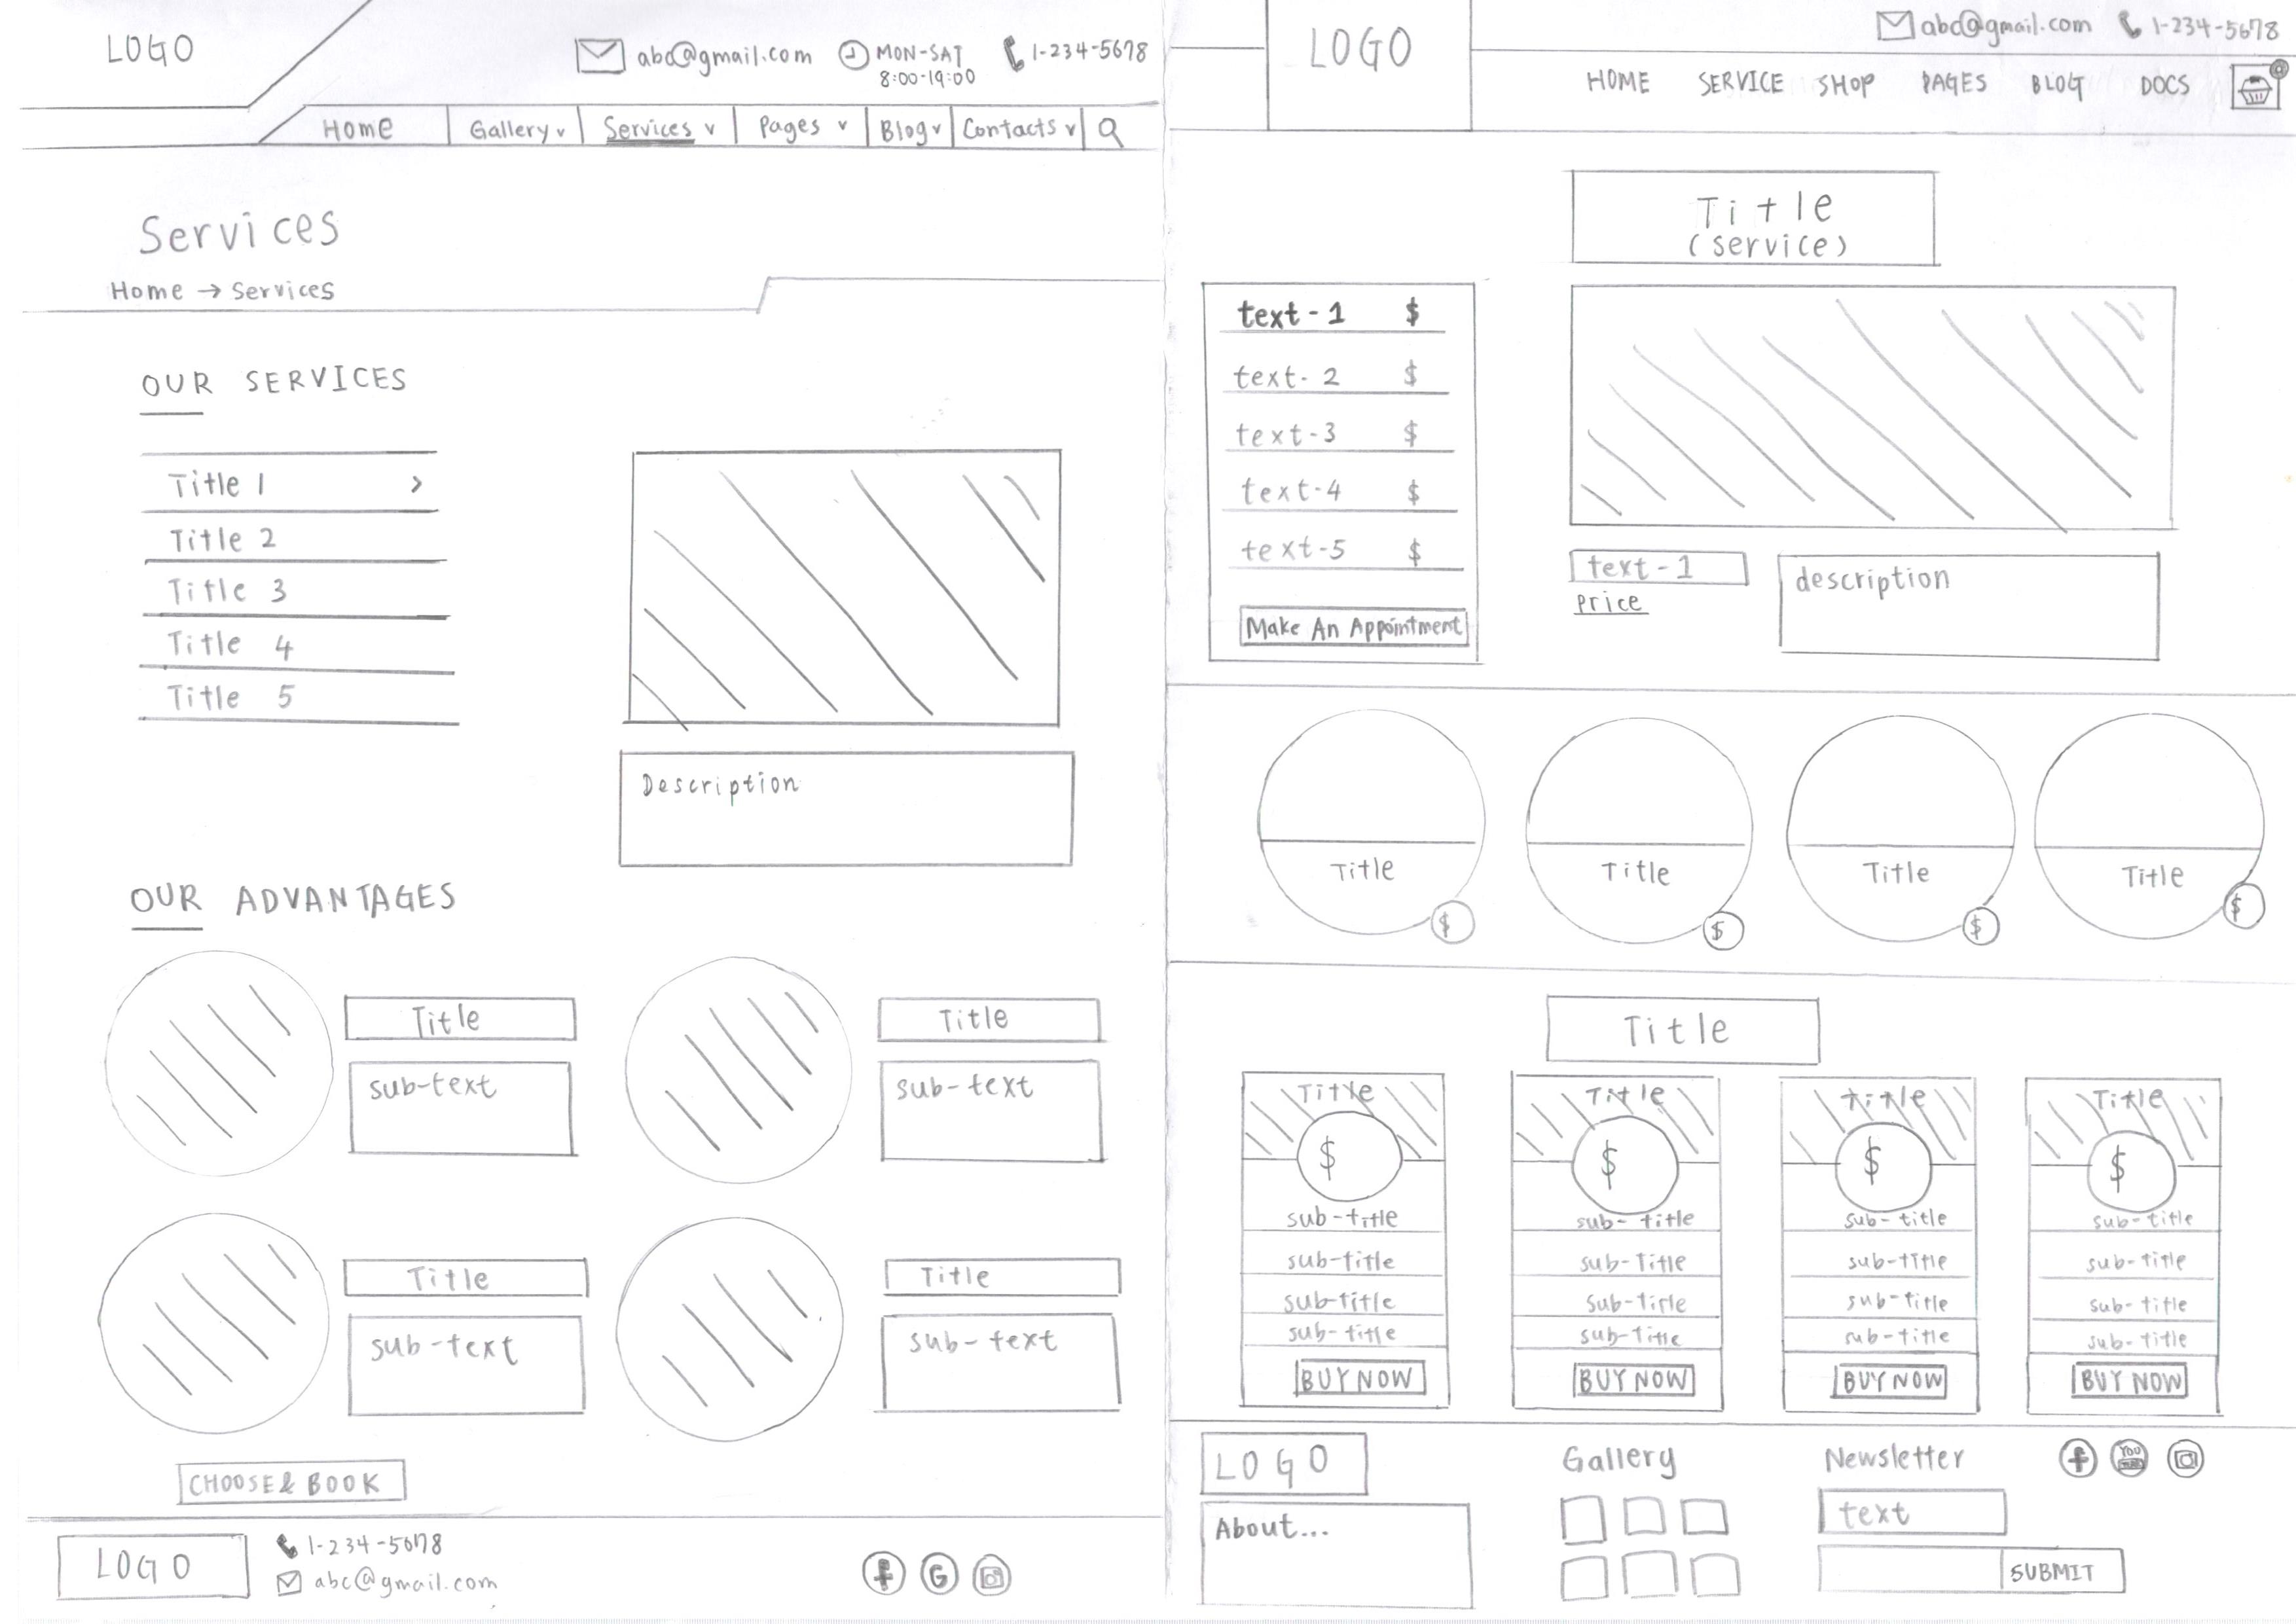 LOGO
abc@gmail.com
MON-SAT
8:00-19:00
1-234-5678
Home
Gallery v
Services v
Pages v
Blog v
Contacts v
Services
Home → Services
OUR SERVICES
Title 1 >
Title 2
Title 3
Title 4
Title 5
Description
OUR ADVANTAGES
Title
sub-text
Title
sub-text
Title
sub-text
Title
sub-text
CHOOSE & BOOK
LOGO
1-234-5678
abc@gmail.com
f G
LOGO
abc@gmail.com
1-234-5678
HOME SERVICE SHOP PAGES BLOG DOCS
Title
(service)
text-1 $
text-2 $
text-3 $
text-4 $
text-5 $
Make An Appointment
text-1
price
description
Title
$
Title
$
Title
$
Title
$
Title
Title
$
sub-title
sub-title
sub-title
sub-title
BUY NOW
Title
$
sub-title
sub-title
sub-title
sub-title
BUY NOW
Title
$
sub-title
sub-title
sub-title
sub-title
BUY NOW
Title
$
sub-title
sub-title
sub-title
sub-title
BUY NOW
LOGO
About...
Gallery
Newsletter
text
SUBMIT
f
YOU